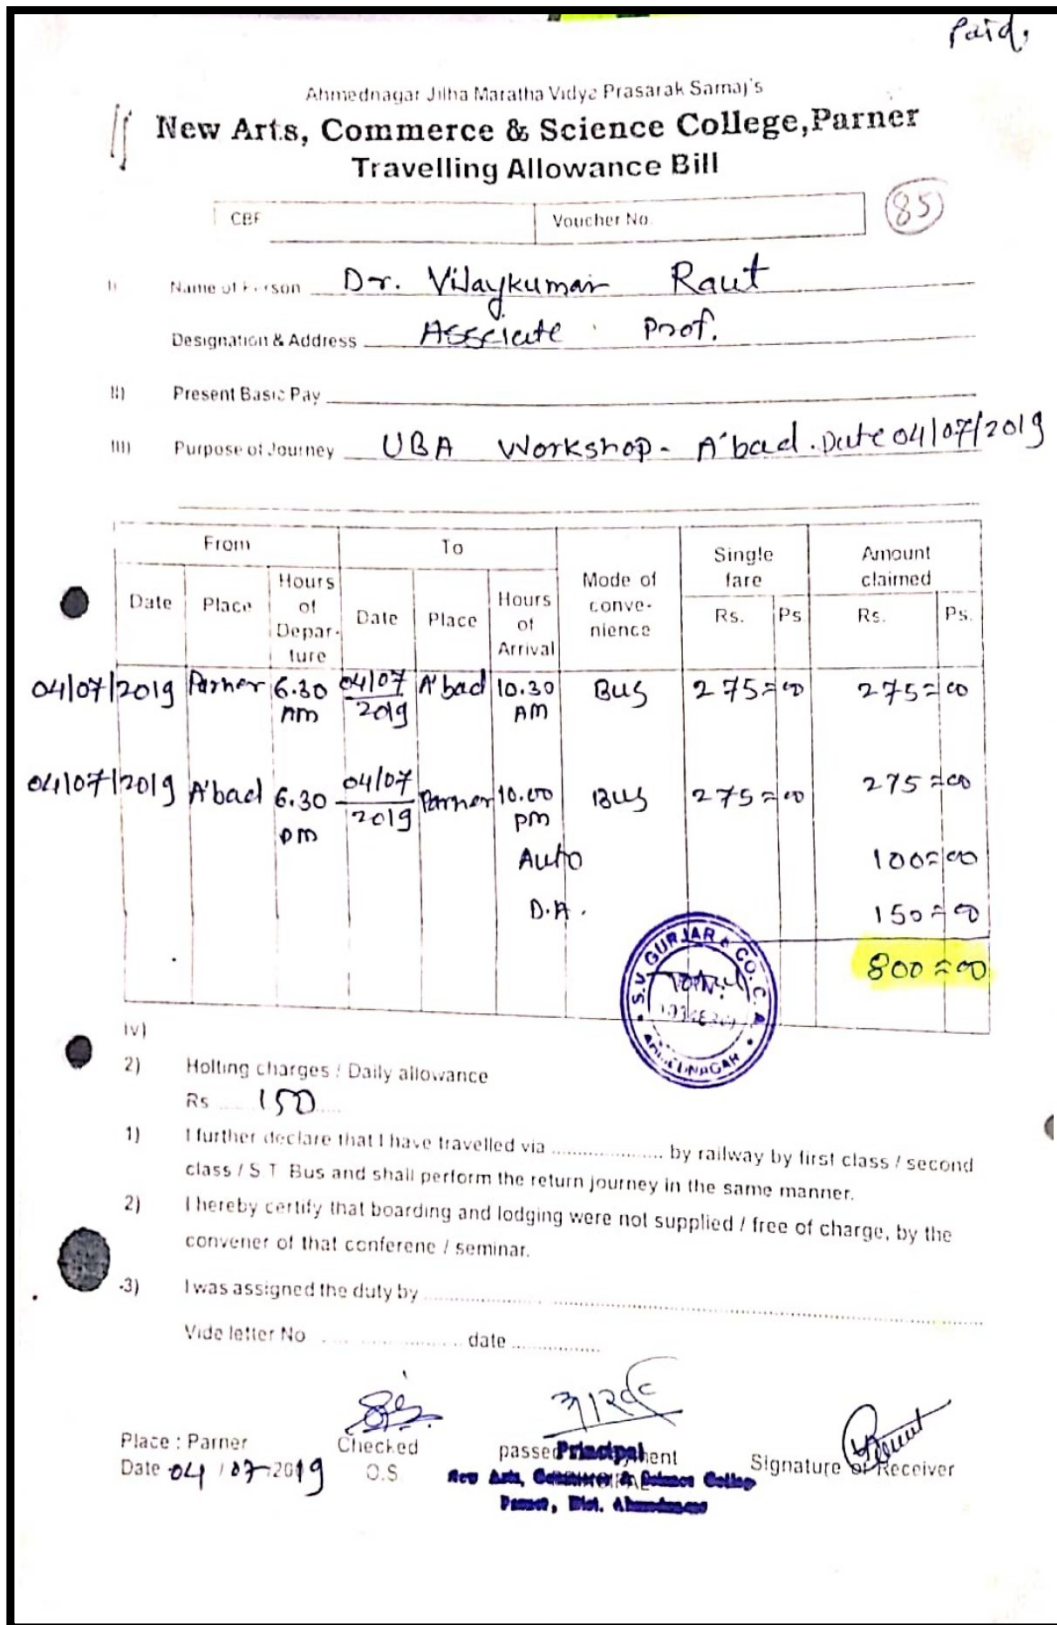 Paid.
Ahmednagar Jilha Maratha Vidya Prasarak Samaj's
New Arts, Commerce & Science College,Parner
Travelling Allowance Bill
CBF Voucher No.
85
I) Name of Person Dr. Vijaykumar Raut
Designation & Address Associate Prof.
II) Present Basic Pay
III) Purpose of Journey UBA Workshop - A'bad. Date 04/07/2019
From To Mode of conve- nience Single fare Amount claimed
Date Place Hours of Depar- ture Date Place Hours of Arrival Rs. Ps Rs. Ps.
04/07/2019 Parner 6.30 AM 04/07 2019 A'bad 10.30 AM Bus 275=00 275=00
04/07/2019 A'bad 6.30 pm 04/07 2019 Parner 10.00 pm Bus 275=00 275=00
Auto 100=00
D.A. 150=00
800=00
S.V. GURJAR & CO. C.A.
iv)
2) Holting charges / Daily allowance
Rs 150
1) I further declare that I have travelled via .................... by railway by first class / second
class / S T Bus and shall perform the return journey in the same manner.
2) I hereby certify that boarding and lodging were not supplied / free of charge, by the
convener of that conferene / seminar.
3) I was assigned the duty by
Vide letter No .................... date ................
Place : Parner Checked passed Principal Signature of Receiver
Date 04 / 07 /2019 O.S New Arts, Commerce & Science College
Parner, Dist. Ahmednagar